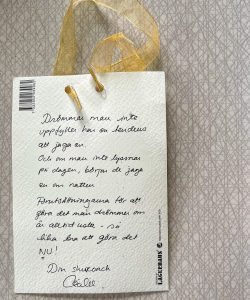 Drömmar man inte
uppfyller har en tendens
att jaga en.
Och om man inte lyssnar
på dagen, börjar de jaga
en om natten.
Förutsättningarna för att
göra det man drömmer om
är alltid usla - så
lika bra att göra det
NU!
Din skrivcoach
LAGERBARS